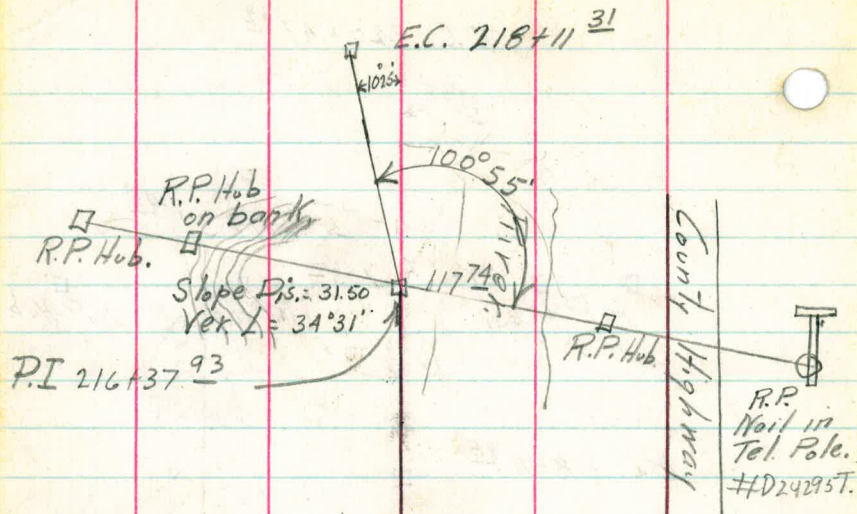 E.C. 218+11 31
100° 55'
R.P. Hub
on bank
R.P. Hub.
117 74
River
Slope Dis. = 31.50
Ver ∠ = 34°31'
P.I 216+37 93
R.P. Hub
County Highway
R.P.
Nail in
Tel. Pole.
#D24295T.